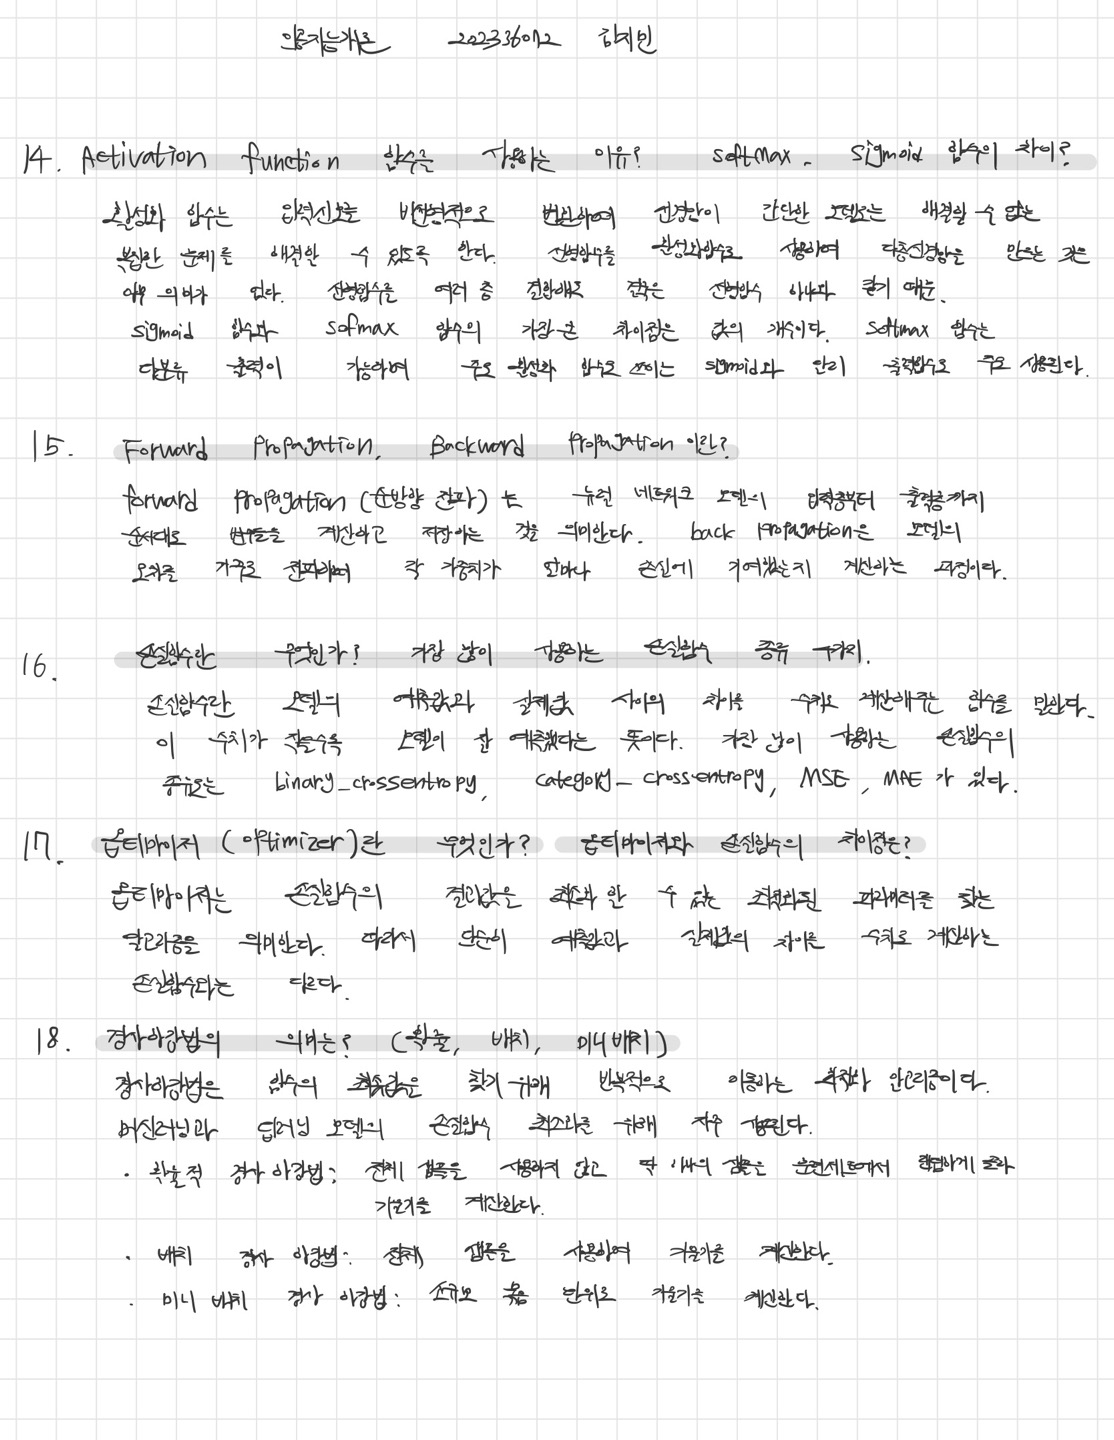 의료지능개론 202336012 김지민
14. Activation function 함수를 사용하는 이유? softmax, sigmoid 함수의 차이?
활성화 함수는 입력신호를 비선형적으로 변환하여 신경망이 간단한 모델로는 해결할 수 없는
복잡한 문제를 해결할 수 있도록 한다. 선형함수를 활성화함수로 사용하여 다층신경망을 만드는 것은
아무 의미가 없다. 선형함수를 여러 층 결합해도 결국은 선형함수 하나와 같기 때문.
sigmoid 함수과 sofmax 함수의 가장 큰 차이점은 값의 개수이다. softmax 함수는
다분류 출력이 가능하며 주로 활성화 함수로 쓰이는 sigmoid와 달리 출력함수로 주로 사용된다.
15. Forward Propagation, Backward Propagation 이란?
forward propagation (순방향 전파) 는 뉴럴 네트워크 모델의 입력층부터 출력층까지
순서대로 변수들을 계산하고 저장하는 것을 의미한다. back propagation은 모델의
오차를 거꾸로 전파하며 각 가중치가 얼마나 손실에 기여했는지 계산하는 과정이다.
16. 손실함수란 무엇인가? 가장 많이 사용하는 손실함수 종류 4가지.
손실함수란 모델의 예측값과 실제값 사이의 차이를 수치로 계산해주는 함수를 말한다.
이 수치가 작을수록 모델이 잘 예측했다는 뜻이다. 가장 많이 사용하는 손실함수의
종류로는 binary_crossentropy, category_crossentropy, MSE, MAE 가 있다.
17. 옵티마이저 (optimizer)란 무엇인가? 옵티마이저와 손실함수의 차이점은?
옵티마이저는 손실함수의 결과값을 최소화 할 수 있는 최적화된 파라미터를 찾는
알고리즘을 의미한다. 따라서 단순히 예측값과 실제값의 차이를 수치로 계산하는
손실함수와는 다르다.
18. 경사하강법의 의미는? (확률, 배치, 미니배치)
경사하강법은 함수의 최솟값을 찾기 위해 반복적으로 이용하는 최적화 알고리즘이다.
머신러닝과 딥러닝 모델의 손실함수 최소화를 위해 자주 사용된다.
· 확률적 경사 하강법: 전체 샘플을 사용하지 않고 딱 하나의 샘플을 훈련세트에서 랜덤하게 골라
기울기를 계산한다.
· 배치 경사 하강법: 전체 샘플을 사용하여 기울기를 계산한다.
· 미니 배치 경사 하강법: 소규모 묶음 단위로 기울기를 계산한다.